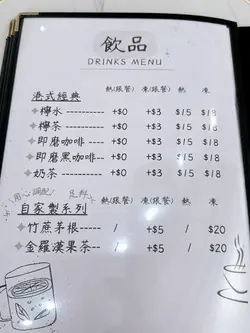 飲品
DRINKS MENU
港式經典 熱(跟餐) 凍(跟餐) 熱 凍
檸水 ---------- +$0 +$3 $15 $18
檸茶 ---------- +$0 +$3 $15 $18
即磨咖啡-- +$0 +$3 $15 $18
即磨黑咖啡-- +$0 +$3 $15 $18
奶茶 ---------- +$0 +$3 $15 $18
用心調配/足料
自家製系列 熱(跟餐) 凍(跟餐) 熱 凍
竹蔗茅根----- / +$5 / $20
金羅漢果茶-- / +$5 / $20